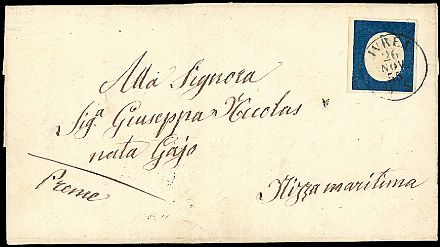 IVREA
26
NOV
Alla Signora
Sig.ª Giuseppa Niccolas
nata Gajo
Preme
Nizza marittima